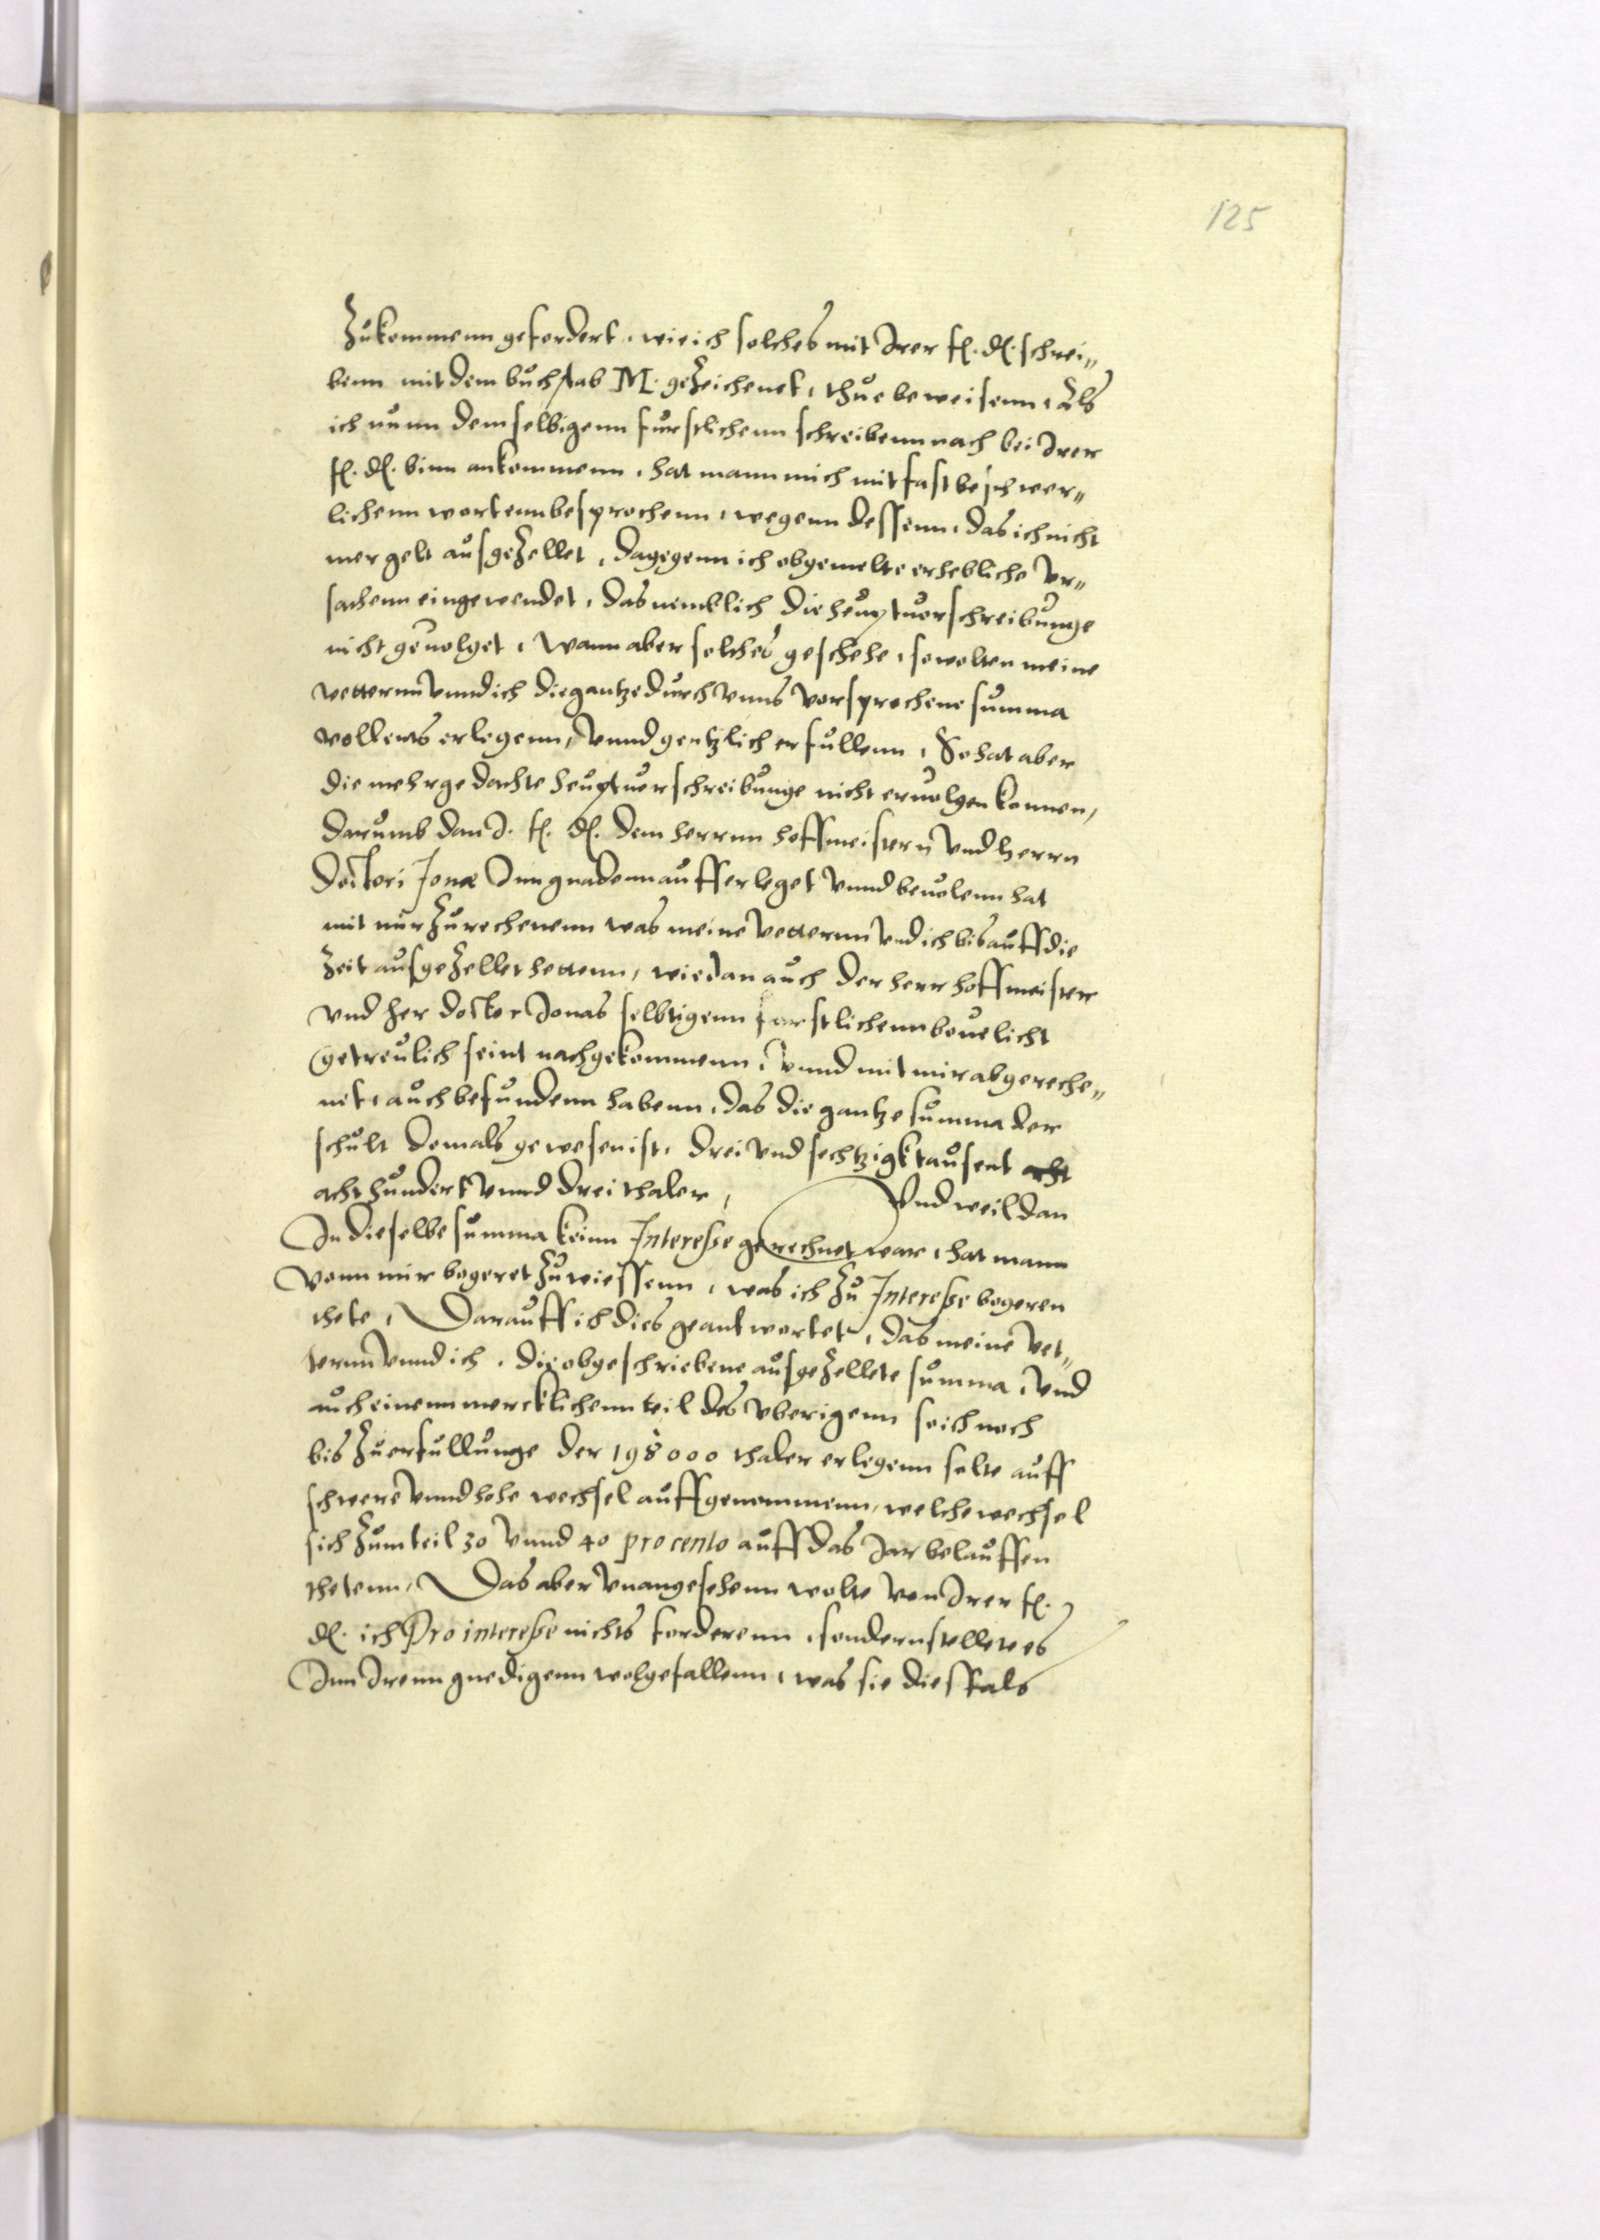 125
Zukommenn gefordert, wie ich solches mit Irer f. d. schrei„
benn mit dem buchstab M. geZeichenet, thue beweisenn, Als
ich nunn demselbigenn furstlichenn schreibenn nach bei Irer
f. d. binn ankommenn, hat mann mich mit fast beschwer„
lichenn wortenn besprochenn, wegenn dessenn, das ich nicht
mer gelt ausgeZellet, dagegenn ich obgemelte erhebliche Ur„
sachenn eingewendet, das nemblich die heuptuorschreibunge
nicht geuolget, Wann aber solches geschehe, so wolten meine
vetternn vnnd ich die gantze durch vnns vorsprochene summa
vollents erlegenn, vnnd gentzlich erfullenn, So hat aber
die mehrgedachte heuptuerschreibunge nicht eruolgen konnen,
darumb dan I. f. d. dem herrnn hoffmeistern vnd herrn
Doctori Jonæ Inn gnadenn aufferleget vnnd beuolenn hat
mit mir Zurechenenn was meine vetternn vnd ich bis auff die
Zeit ausgeZellet hettenn, wie dan auch der herr hoffmeister
vnd her doctor Jonas selbtigenn furstlichenn beuelicht
getreulich seint nachgekommenn, vnnd mit mir abgereche„
net, auch befundenn habenn, das die gantze summa der
schult domals gewesen ist, drei vnd sechtzigk tausent acht
acht hundert vnnd drei thaler, Vnd weil dan
In dieselbe summa keinn Interesse gerechnet war, hat mann
vonn mir begeret Zuwiessenn, was ich Zu Interesse begeren
thete, Darauff ich dies geantwortet, das meine vet„
ternn vnnd ich, die obgeschriebene ausgeZellete summa, vnd
auch einenn mercklichenn teil des vberigenn so ich noch
bis Zu erfullunge der 198000 thaler erlegenn solte auff
schwere vnnd hohe wechsel auffgenommenn, welche wechsel
sich Zum teil 30 vnnd 40 pro cento auff das Jar belauffen
thetenn, Das aber vnangesehenn wolte von Irer f.
d. ich Pro interesse nichts forderenn, sondern stellete es
Inn Irenn gnedigenn wolgefallenn, was sie diesfals